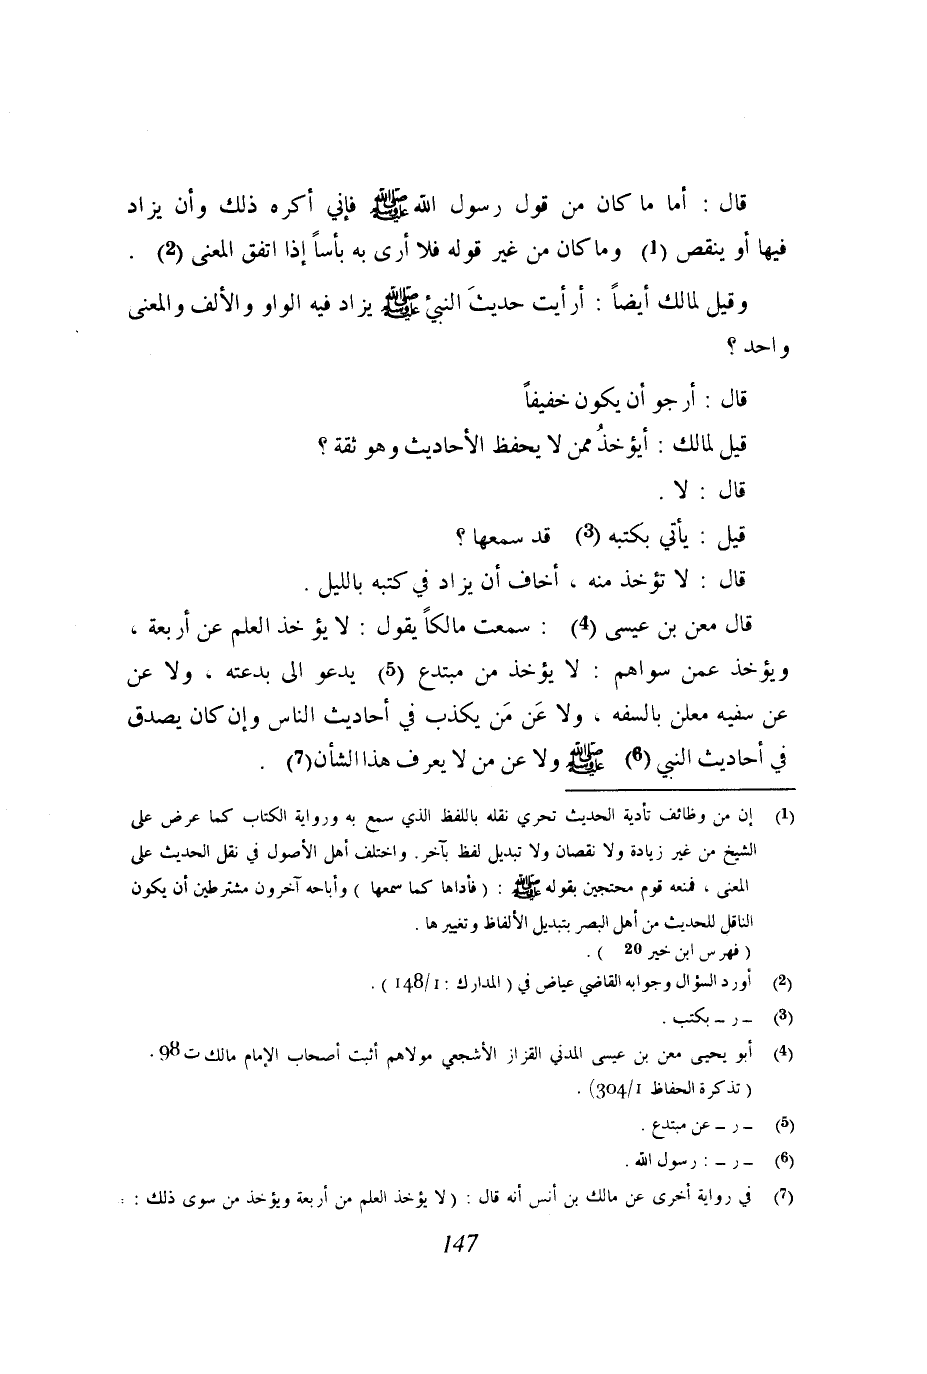 قال : أما ما كان من قول رسول الله ﷺ فإني أكره ذلك وأن يزاد
فيها أو ينقص (1) وما كان من غير قوله فلا أرى به بأساً إذا اتفق المعنى (2) .
وقيل لمالك أيضاً : أرأيت حديثَ النبيّ ﷺ يزاد فيه الواو والألف والمعنى
واحد ؟
قال : أرجو أن يكون خفيفاً
قيل لمالك : أيؤخذُ ممن لا يحفظ الأحاديث وهو ثقة ؟
قال : لا .
قيل : يأتي بكتبه (3) قد سمعها ؟
قال : لا تؤخذ منه ، أخاف أن يزاد في كتبه بالليل .
قال معن بن عيسى (4) : سمعت مالكاً يقول : لا يؤخذ العلم عن أربعة ،
ويؤخذ عمن سواهم : لا يؤخذ من مبتدع (5) يدعو الى بدعته ، ولا عن
عن سفيه معلن بالسفه ، ولا عَن مَن يكذب في أحاديث الناس وإن كان يصدق
في أحاديث النبي (6) ﷺ ولا عن من لا يعرف هذا الشأن(7) .
(1) إن من وظائف تأدية الحديث تحري نقله باللفظ الذي سمع به ورواية الكتاب كما عرض على
الشيخ من غير زيادة ولا نقصان ولا تبديل لفظ بآخر. واختلف أهل الأصول في نقل الحديث على
المعنى ، فمنعه قوم محتجين بقوله ﷺ : ( فأداها كما سمعها ) وأباحه آخرون مشترطين أن يكون
الناقل للحديث من أهل البصر بتبديل الألفاظ وتغييرها .
( فهرس ابن خير 20 ) .
(2) أورد السؤال وجوابه القاضي عياض في ( المدارك : 1/148 ) .
(3) – ر – بكتب .
(4) أبو يحيى معن بن عيسى المدني القزاز الأشجعي مولاهم أثبت أصحاب الإمام مالك ت 98 .
( تذكرة الحفاظ 1/304) .
(5) – ر – عن مبتدع .
(6) – ر – : رسول الله .
(7) في رواية أخرى عن مالك بن أنس أنه قال : ( لا يؤخذ العلم من أربعة ويؤخذ من سوى ذلك : :
147